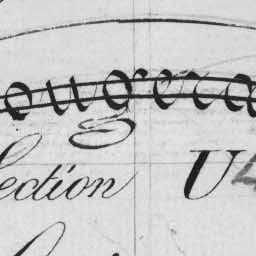 ougera
ection U4